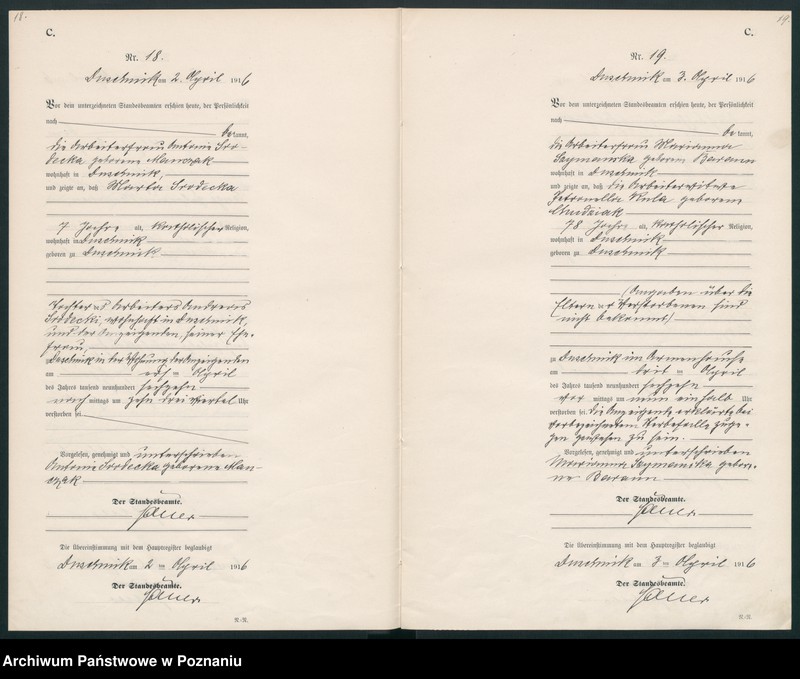 18.
C.
Nr. 18.
Duschnik am 2. April 1916
Vor dem unterzeichneten Standesbeamten erschien heute, der Persönlichkeit
nach
be kannt,
die Arbeiterfrau Antonie Sro-
decka geborene
wohnhaft in Duschnik,
und zeigte an, daß Marta Srodecka
7 Jahre alt, katholischer Religion,
wohnhaft in Duschnik
geboren zu Duschnik
Tochter des Arbeiters Andreas
Srodecki, wohnhaft in Duschnik,
und der Anzeigenden, seiner Ehe-
frau,
Duschnik in der Wohnung der Anzeigenden
am April
des Jahres tausend neunhundert sechzehn
nach mittags um zehn dreiviertel Uhr
verstorben sei.
Vorgelesen, genehmigt und unterschrieben
Antonie Srodecka geborene
Der Standesbeamte.
Die Übereinstimmung mit dem Hauptregister beglaubigt
Duschnik am 2 ten April 1916
Der Standesbeamte.
R.-R.
19.
C.
Nr. 19.
Duschnik am 3. April 1916
Vor dem unterzeichneten Standesbeamten erschien heute, der Persönlichkeit
nach
be kannt,
die Arbeiterfrau Marianna
Szymanska geborene Baraun
wohnhaft in Duschnik
und zeigte an, daß die Arbeiterwitwe
Petronella Kula geborene
Chudziak
78 Jahre alt, katholischer Religion,
wohnhaft in Duschnik
geboren zu Duschnik
(Angaben über die
Eltern der Verstorbenen sind
nicht bekannt)
zu Duschnik im Armenhause
am April
des Jahres tausend neunhundert sechzehn
vor mittags um neun einhalb Uhr
verstorben sei. Die Anzeigende erklärte, bei
vorbezeichnetem Sterbefalle zuge-
gen gewesen zu sein.
Vorgelesen, genehmigt und unterschrieben
Marianna Szymanska gebore-
ne Baraun
Der Standesbeamte.
Die Übereinstimmung mit dem Hauptregister beglaubigt
Duschnik am 3 ten April 1916
Der Standesbeamte.
R.-R.
Archiwum Państwowe w Poznaniu